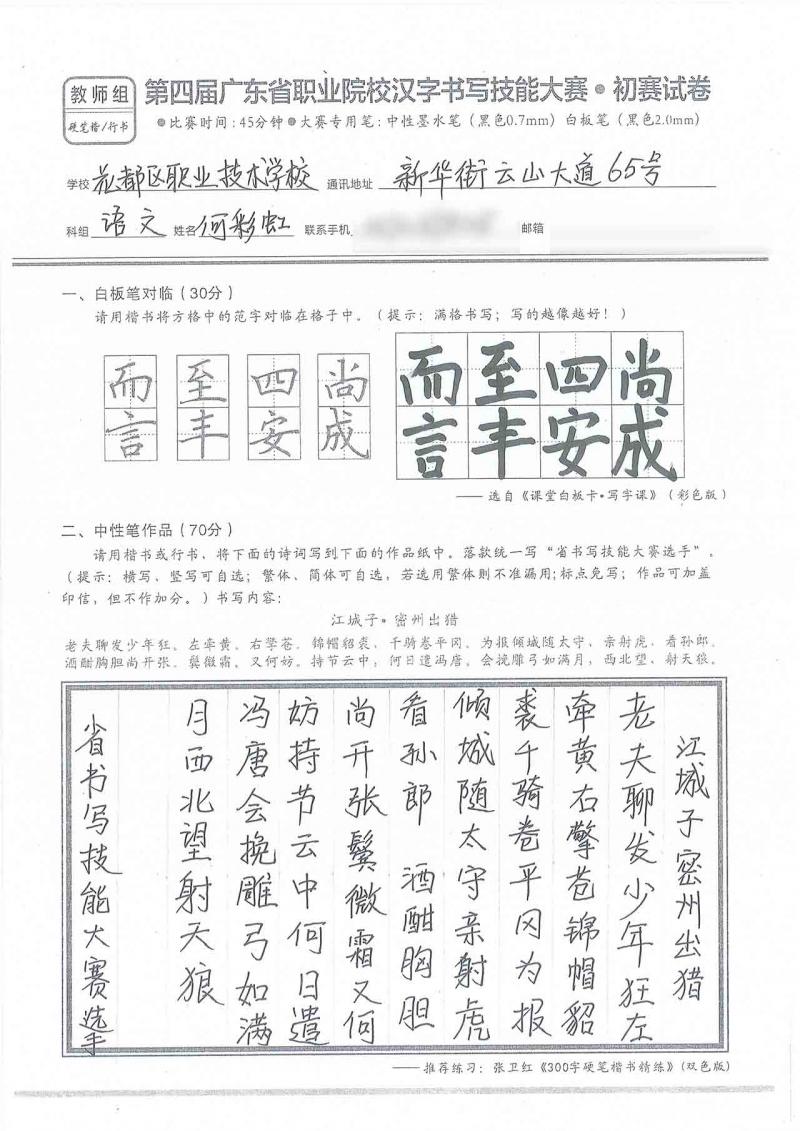 教师组
硬笔楷/行书
第四届广东省职业院校汉字书写技能大赛·初赛试卷
●比赛时间:45分钟●大赛专用笔:中性墨水笔(黑色0.7mm)白板笔(黑色2.0mm)
学校 花都区职业技术学校 通讯地址 新华街云山大道65号
科组 语文 姓名 何彩虹 联系手机 邮箱
一、白板笔对临(30分)
请用楷书将方格中的范字对临在格子中。(提示:满格书写;写的越像越好!)
而至四尚 而至四尚
言丰安成 言丰安成
——选自《课堂白板卡·写字课》(彩色版)
二、中性笔作品(70分)
请用楷书或行书,将下面的诗词写到下面的作品纸中。落款统一写“省书写技能大赛选手”。
(提示:横写、竖写可自选;繁体、简体可自选,若选用繁体则不准漏用;标点免写;作品可加盖
印信,但不作加分。)书写内容:
江城子·密州出猎
老夫聊发少年狂。左牵黄。右擎苍。锦帽貂裘,千骑卷平冈。为报倾城随太守、亲射虎,看孙郎。
酒酣胸胆尚开张。鬓微霜。又何妨。持节云中,何日遣冯唐。会挽雕弓如满月,西北望、射天狼。
江城子密州出猎
老夫聊发少年狂左
牵黄右擎苍锦帽貂
裘千骑卷平冈为报
倾城随太守亲射虎
看孙郎 酒酣胸胆
尚开张鬓微霜又何
妨持节云中何日遣
冯唐会挽雕弓如满
月西北望射天狼
省书写技能大赛选手
——推荐练习:张卫红《300字硬笔楷书精练》(双色版)